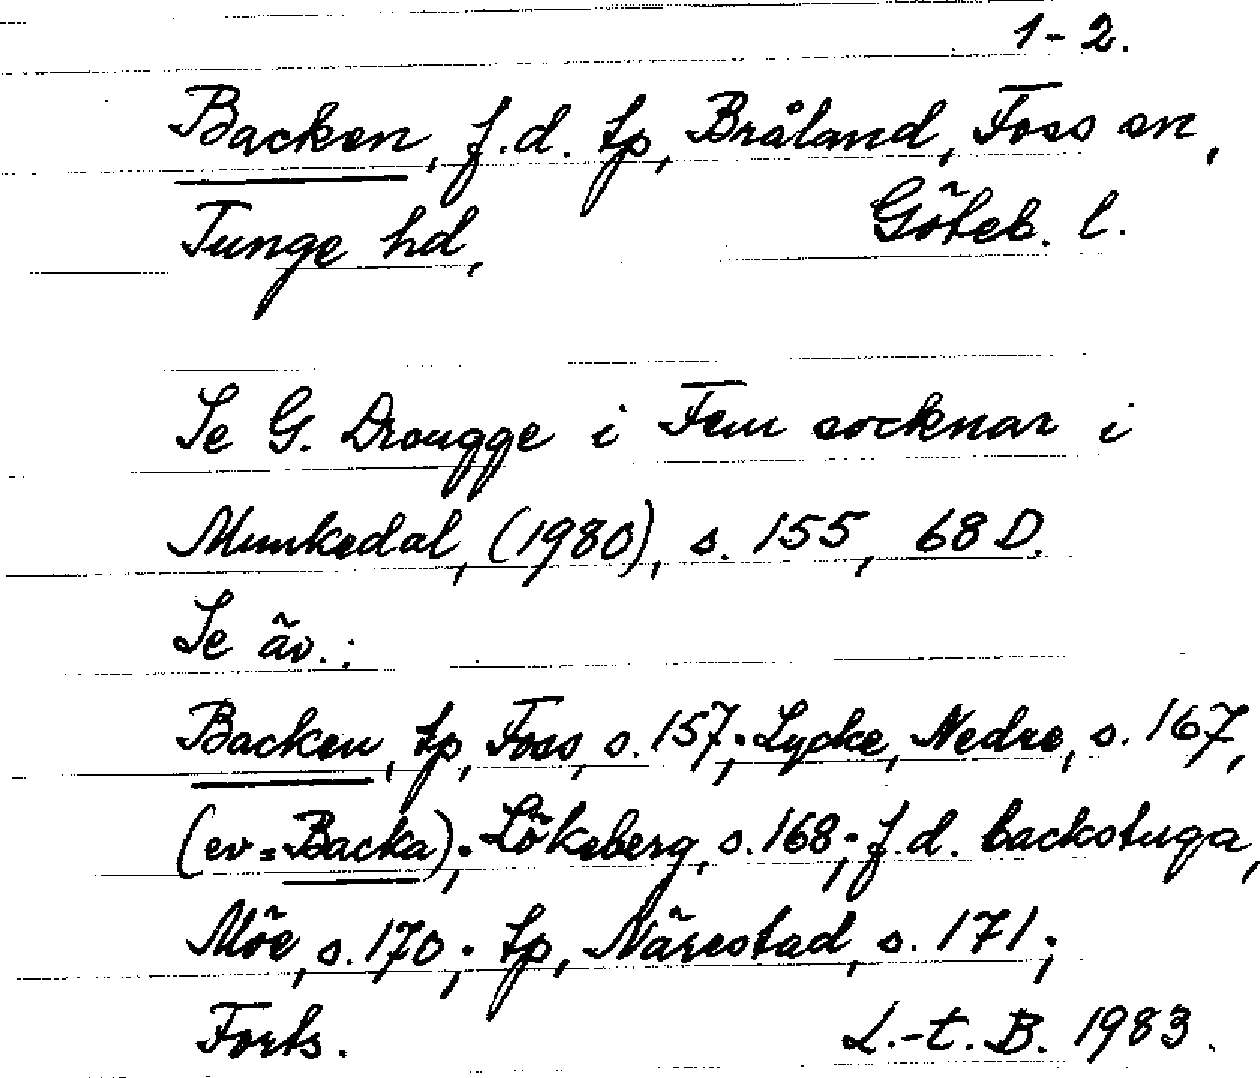 1-2.
Backen, f.d. tp, Bråland, Foss sn,
Tunge hd, Göteb. l.
Se G. Drougge i Fem socknar i
Munkedal, (1980), s. 155, 68 D.
Se äv.:
Backen, tp, Foss, s. 157; Lycke, Nedre, s. 167,
(ev = Backa); Lökeberg, s. 168; f.d. backstuga,
Möe, s. 170; tp, Närestad, s. 171;
Forts. L.-t. B. 1983.